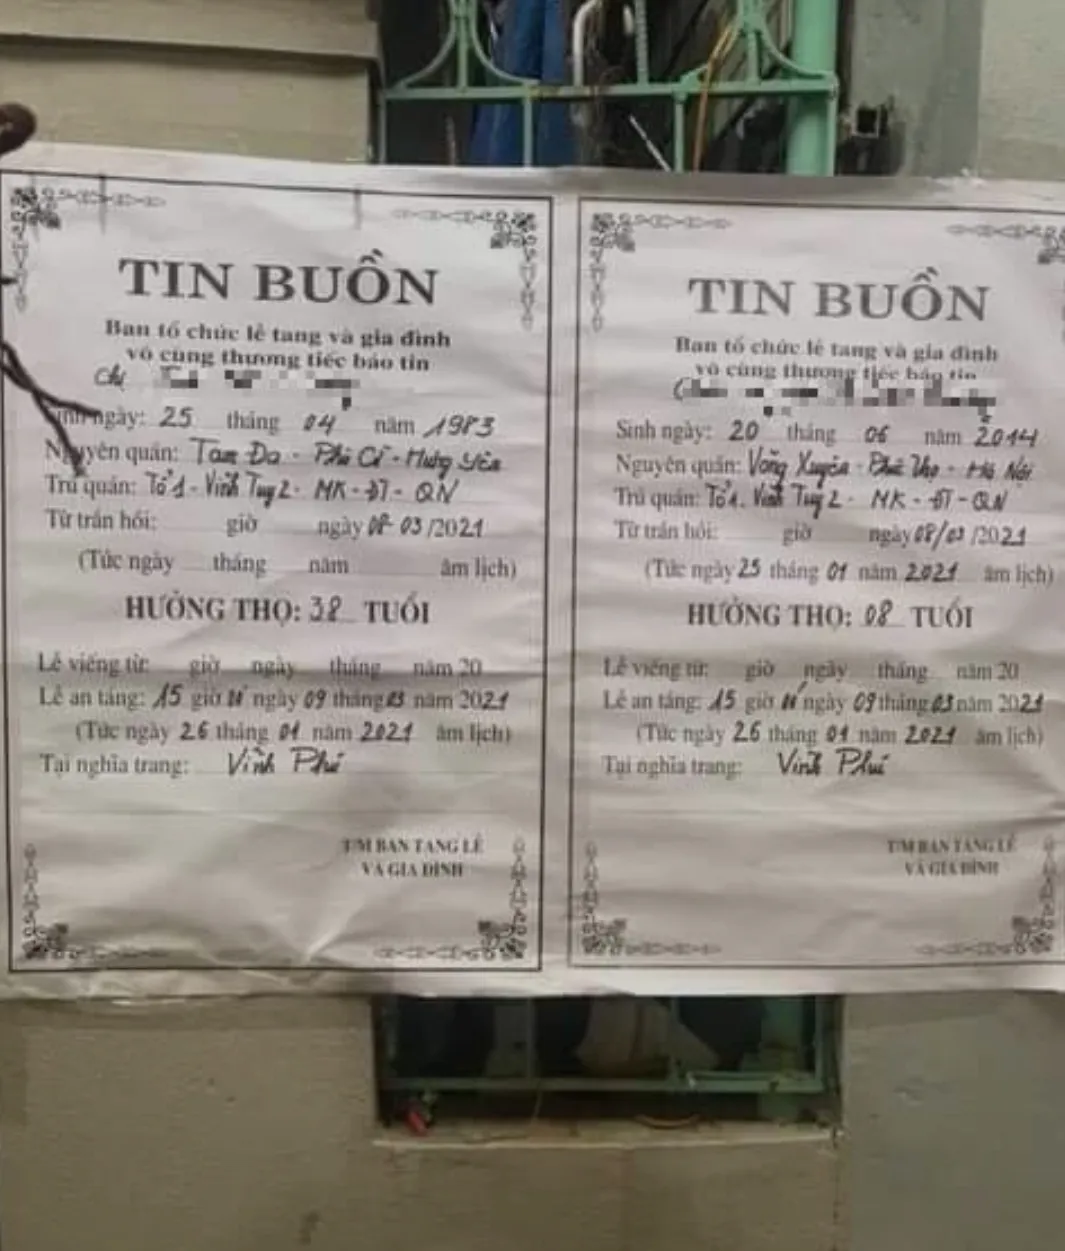 TIN BUỒN
Ban tổ chức lễ tang và gia đình
vô cùng thương tiếc báo tin
Chị
Sinh ngày: 25 tháng 04 năm 1983
Nguyên quán: Tam Đa - Phù Cừ - Hưng Yên
Trú quán: Tổ 1 - Vĩnh Tuy 2 - MK - ĐT - QN
Từ trần hồi: giờ ngày 08-03/2021
(Tức ngày tháng năm âm lịch)
HƯỞNG THỌ: 38 TUỔI
Lễ viếng từ: giờ ngày tháng năm 20
Lễ an táng: 15 giờ ngày 09 tháng 03 năm 2021
(Tức ngày 26 tháng 01 năm 2021 âm lịch)
Tại nghĩa trang: Vĩnh Phú
T/M BAN TANG LỄ
VÀ GIA ĐÌNH
TIN BUỒN
Ban tổ chức lễ tang và gia đình
vô cùng thương tiếc báo tin
Sinh ngày: 20 tháng 06 năm 2014
Nguyên quán: Võng Xuyên - Phúc Thọ - Hà Nội
Trú quán: Tổ 1. Vĩnh Tuy 2 - MK - ĐT - QN
Từ trần hồi: giờ ngày 08/03/2021
(Tức ngày 25 tháng 01 năm 2021 âm lịch)
HƯỞNG THỌ: 08 TUỔI
Lễ viếng từ: giờ ngày tháng năm 20
Lễ an táng: 15 giờ ngày 09 tháng 03 năm 2021
(Tức ngày 26 tháng 01 năm 2021 âm lịch)
Tại nghĩa trang: Vĩnh Phú
T/M BAN TANG LỄ
VÀ GIA ĐÌNH